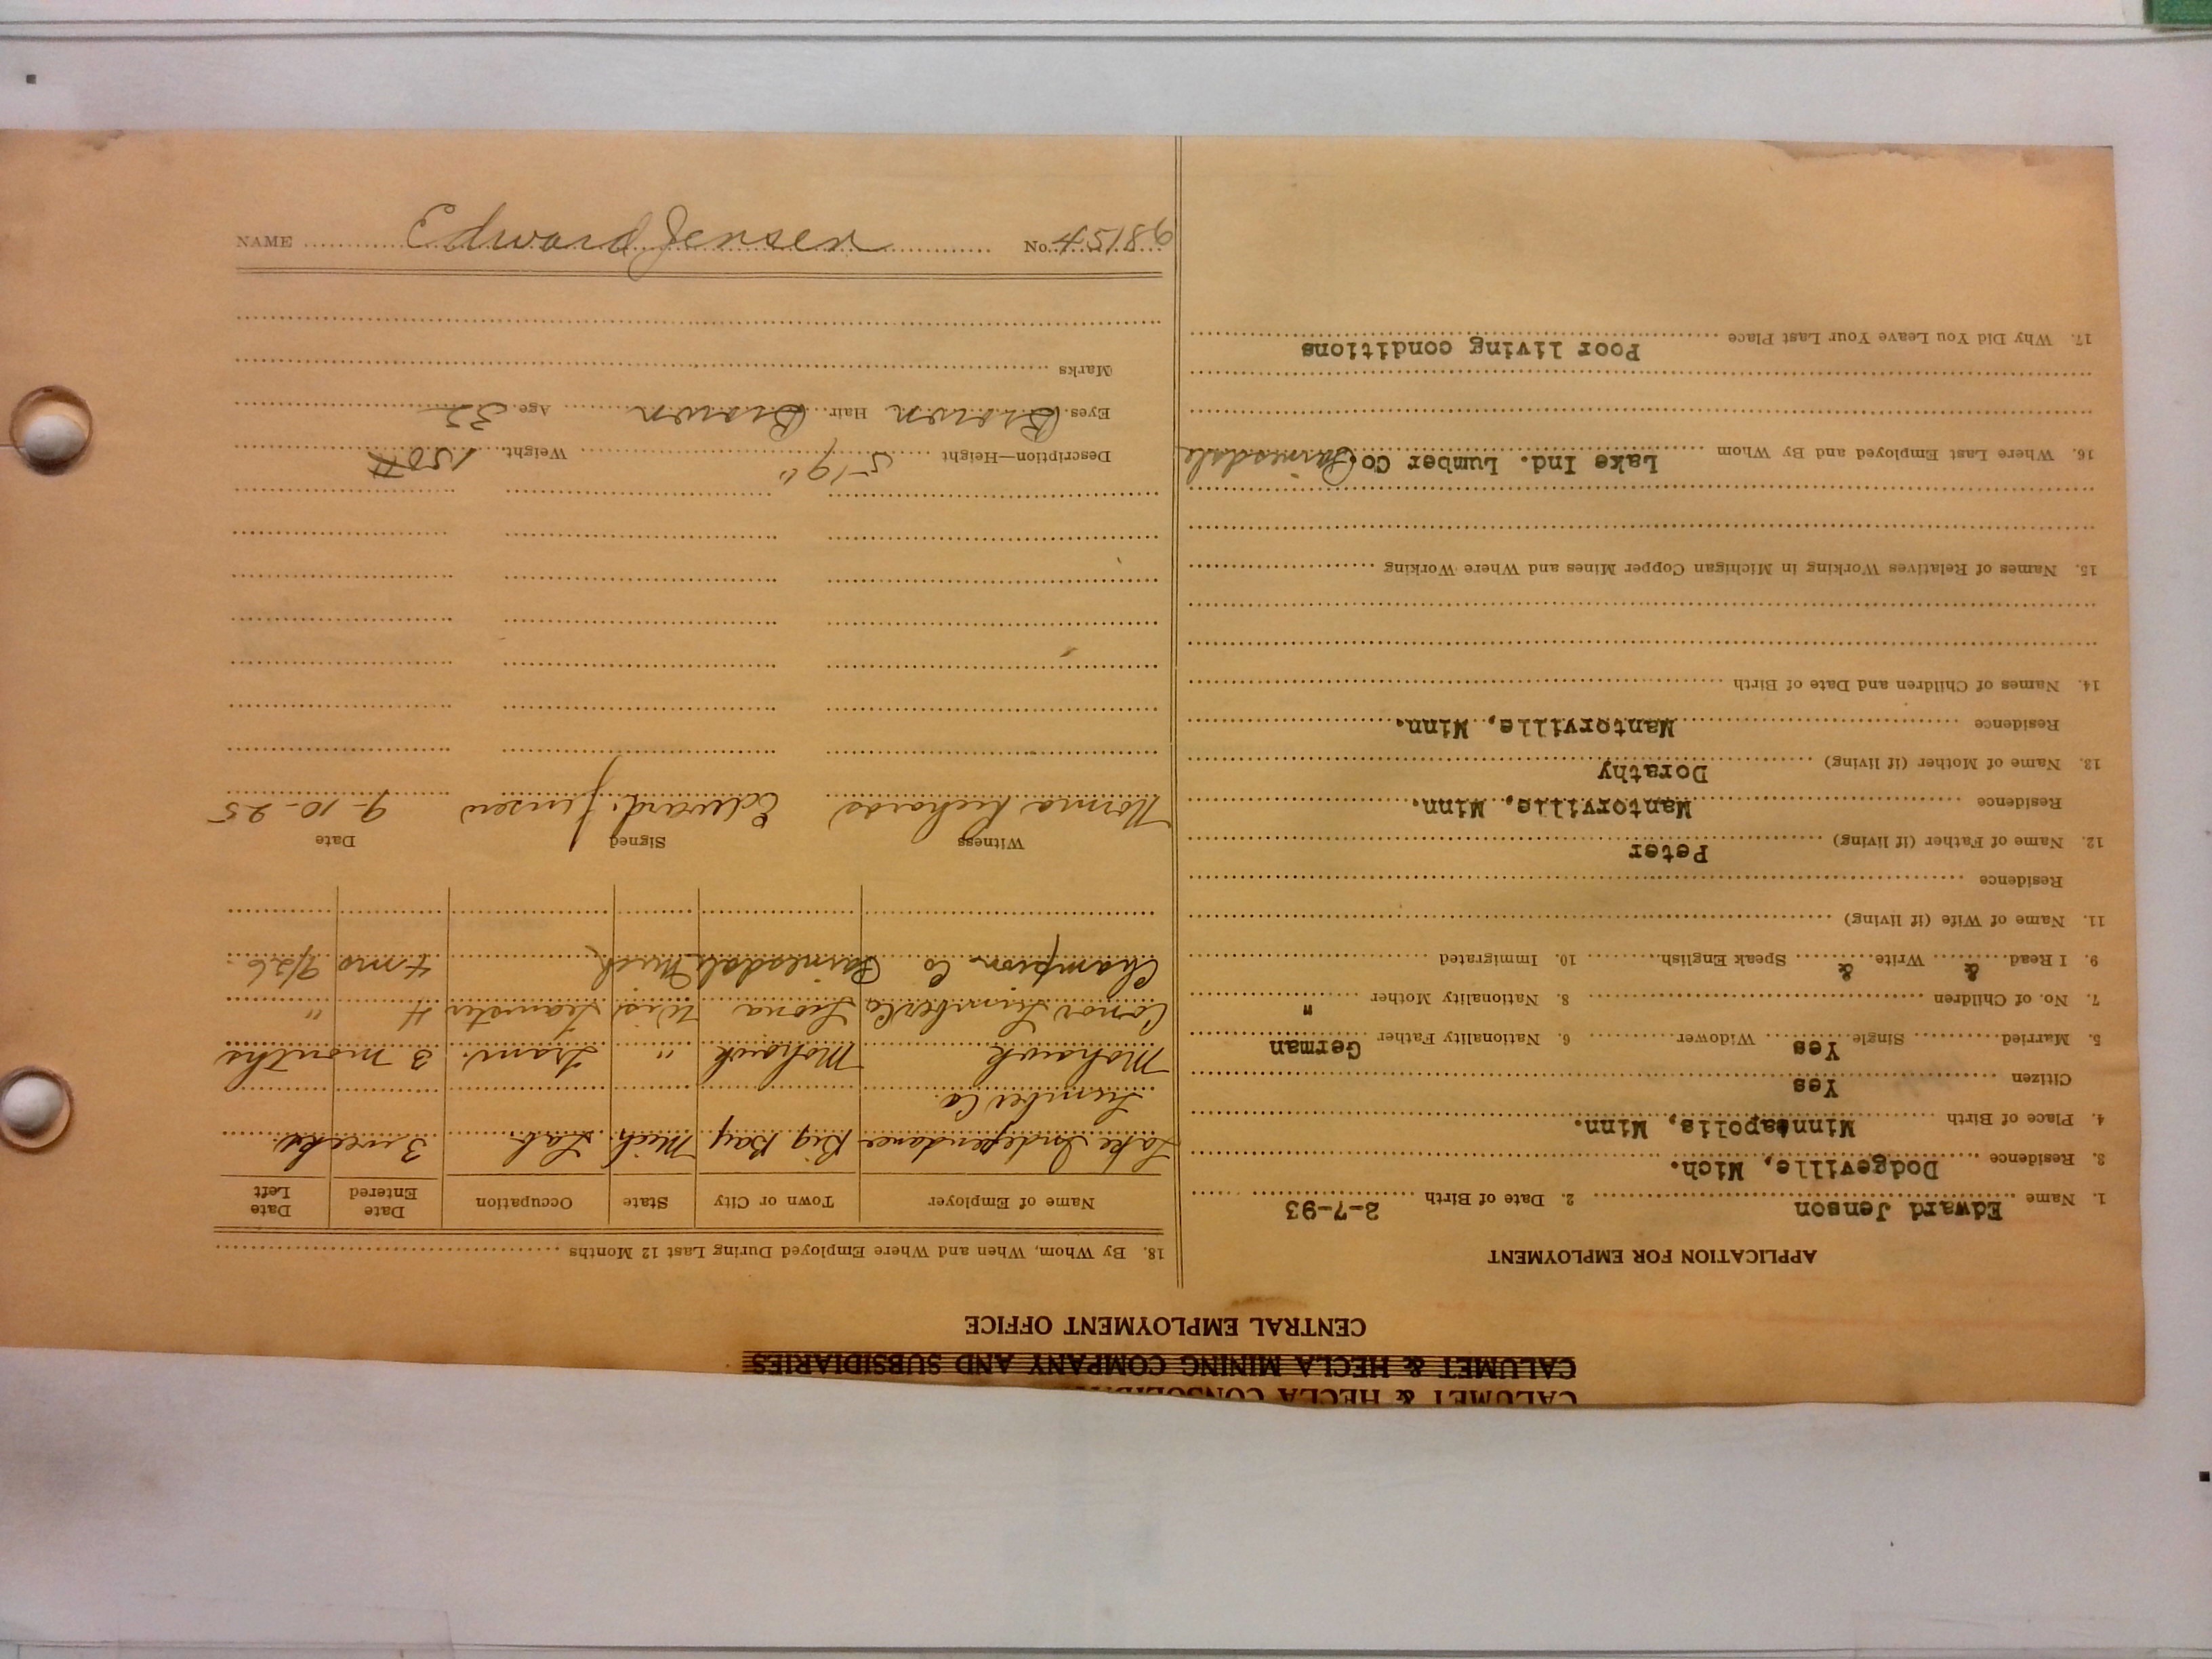 CALUMET & HECLA CONSOLIDA
CALUMET & HECLA MINING COMPANY AND SUBSIDIARIES
CENTRAL EMPLOYMENT OFFICE
APPLICATION FOR EMPLOYMENT
1. Name Edward Jenson 2. Date of Birth 2-7-93
3. Residence Dodgeville, Mich.
4. Place of Birth Minneapolis, Minn.
Citizen Yes
5. Married Single Yes Widower 6. Nationality Father German
7. No. of Children 8. Nationality Mother "
9. I Read & Write & Speak English 10. Immigrated
11. Name of Wife (if living)
Residence
12. Name of Father (if living) Peter
Residence Mantorville, Minn.
13. Name of Mother (if living) Dorathy
Residence Mantorville, Minn.
14. Names of Children and Date of Birth
15. Names of Relatives Working in Michigan Copper Mines and Where Working
16. Where Last Employed and By Whom Lake Ind. Lumber Co Painesdale
17. Why Did You Leave Your Last Place Poor living conditions
18. By Whom, When and Where Employed During Last 12 Months
Name of Employer Town or City State Occupation Date Entered Date Left
Lake Independance Big Bay Mich. Lab. 3 weeks.
Lumber Co.
Mohawk Mohawk " Tram. 3 months
Conor Lumber Co Laona Wis Teamster 4 "
Champion Co Painesdale Mich 4 mo 9/26
Witness Signed Date
Norma Richards Edward Jensen 9-10-25
Description—Height 5'9" Weight 150#
Eyes Brown Hair Brown Age 32
Marks
NAME Edward Jensen No. 45186